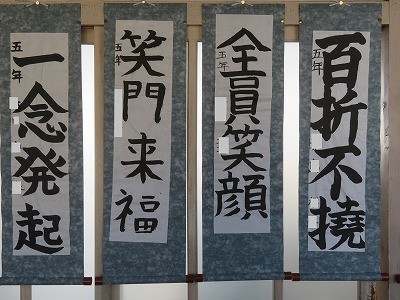 百折不撓
五年
全員笑顔
五年
笑門来福
五年
一念発起
五年